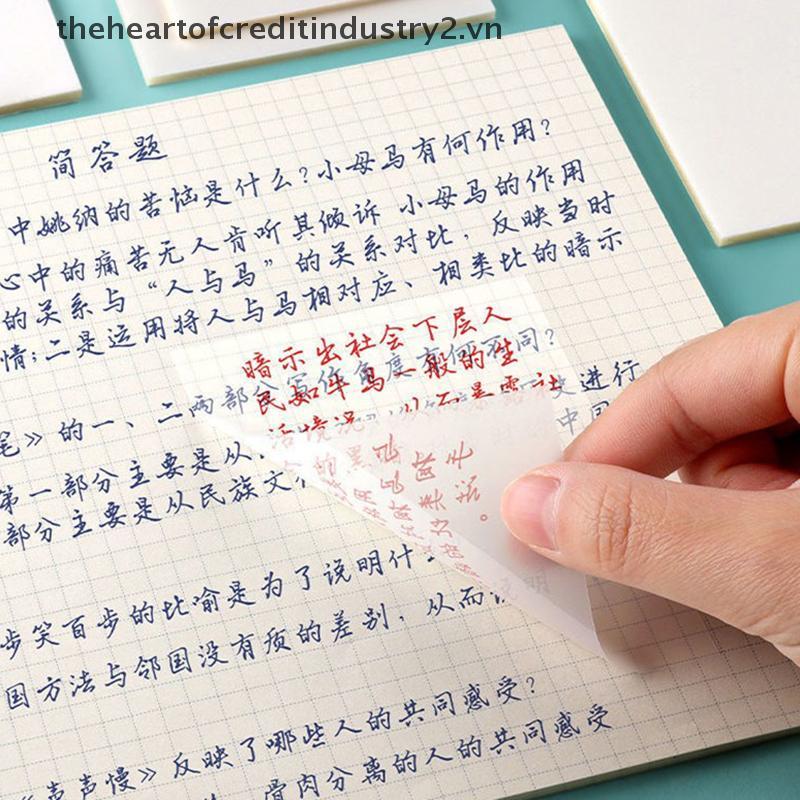 theheartofcreditindustry2.vn
简答题
中姚纳的苦恼是什么?小母马有何作用?
心中的痛苦无人肯听其倾诉 小母马的作用
的关系与“人与马”的关系对比,反映当时
情;二是运用将人与马相对应、相类比的暗示
暗示出社会下层人
民如牛马一般的生
活境况
笔》的一、二两部分写作角度有何不同?
第一部分主要是从 进行
部分主要是从民族文 中国
步笑百步的比喻是为了说明什
国方法与邻国没有质的差别,从而说明
《声声慢》反映了哪些人的共同感受?
骨肉分离的人的共同感受